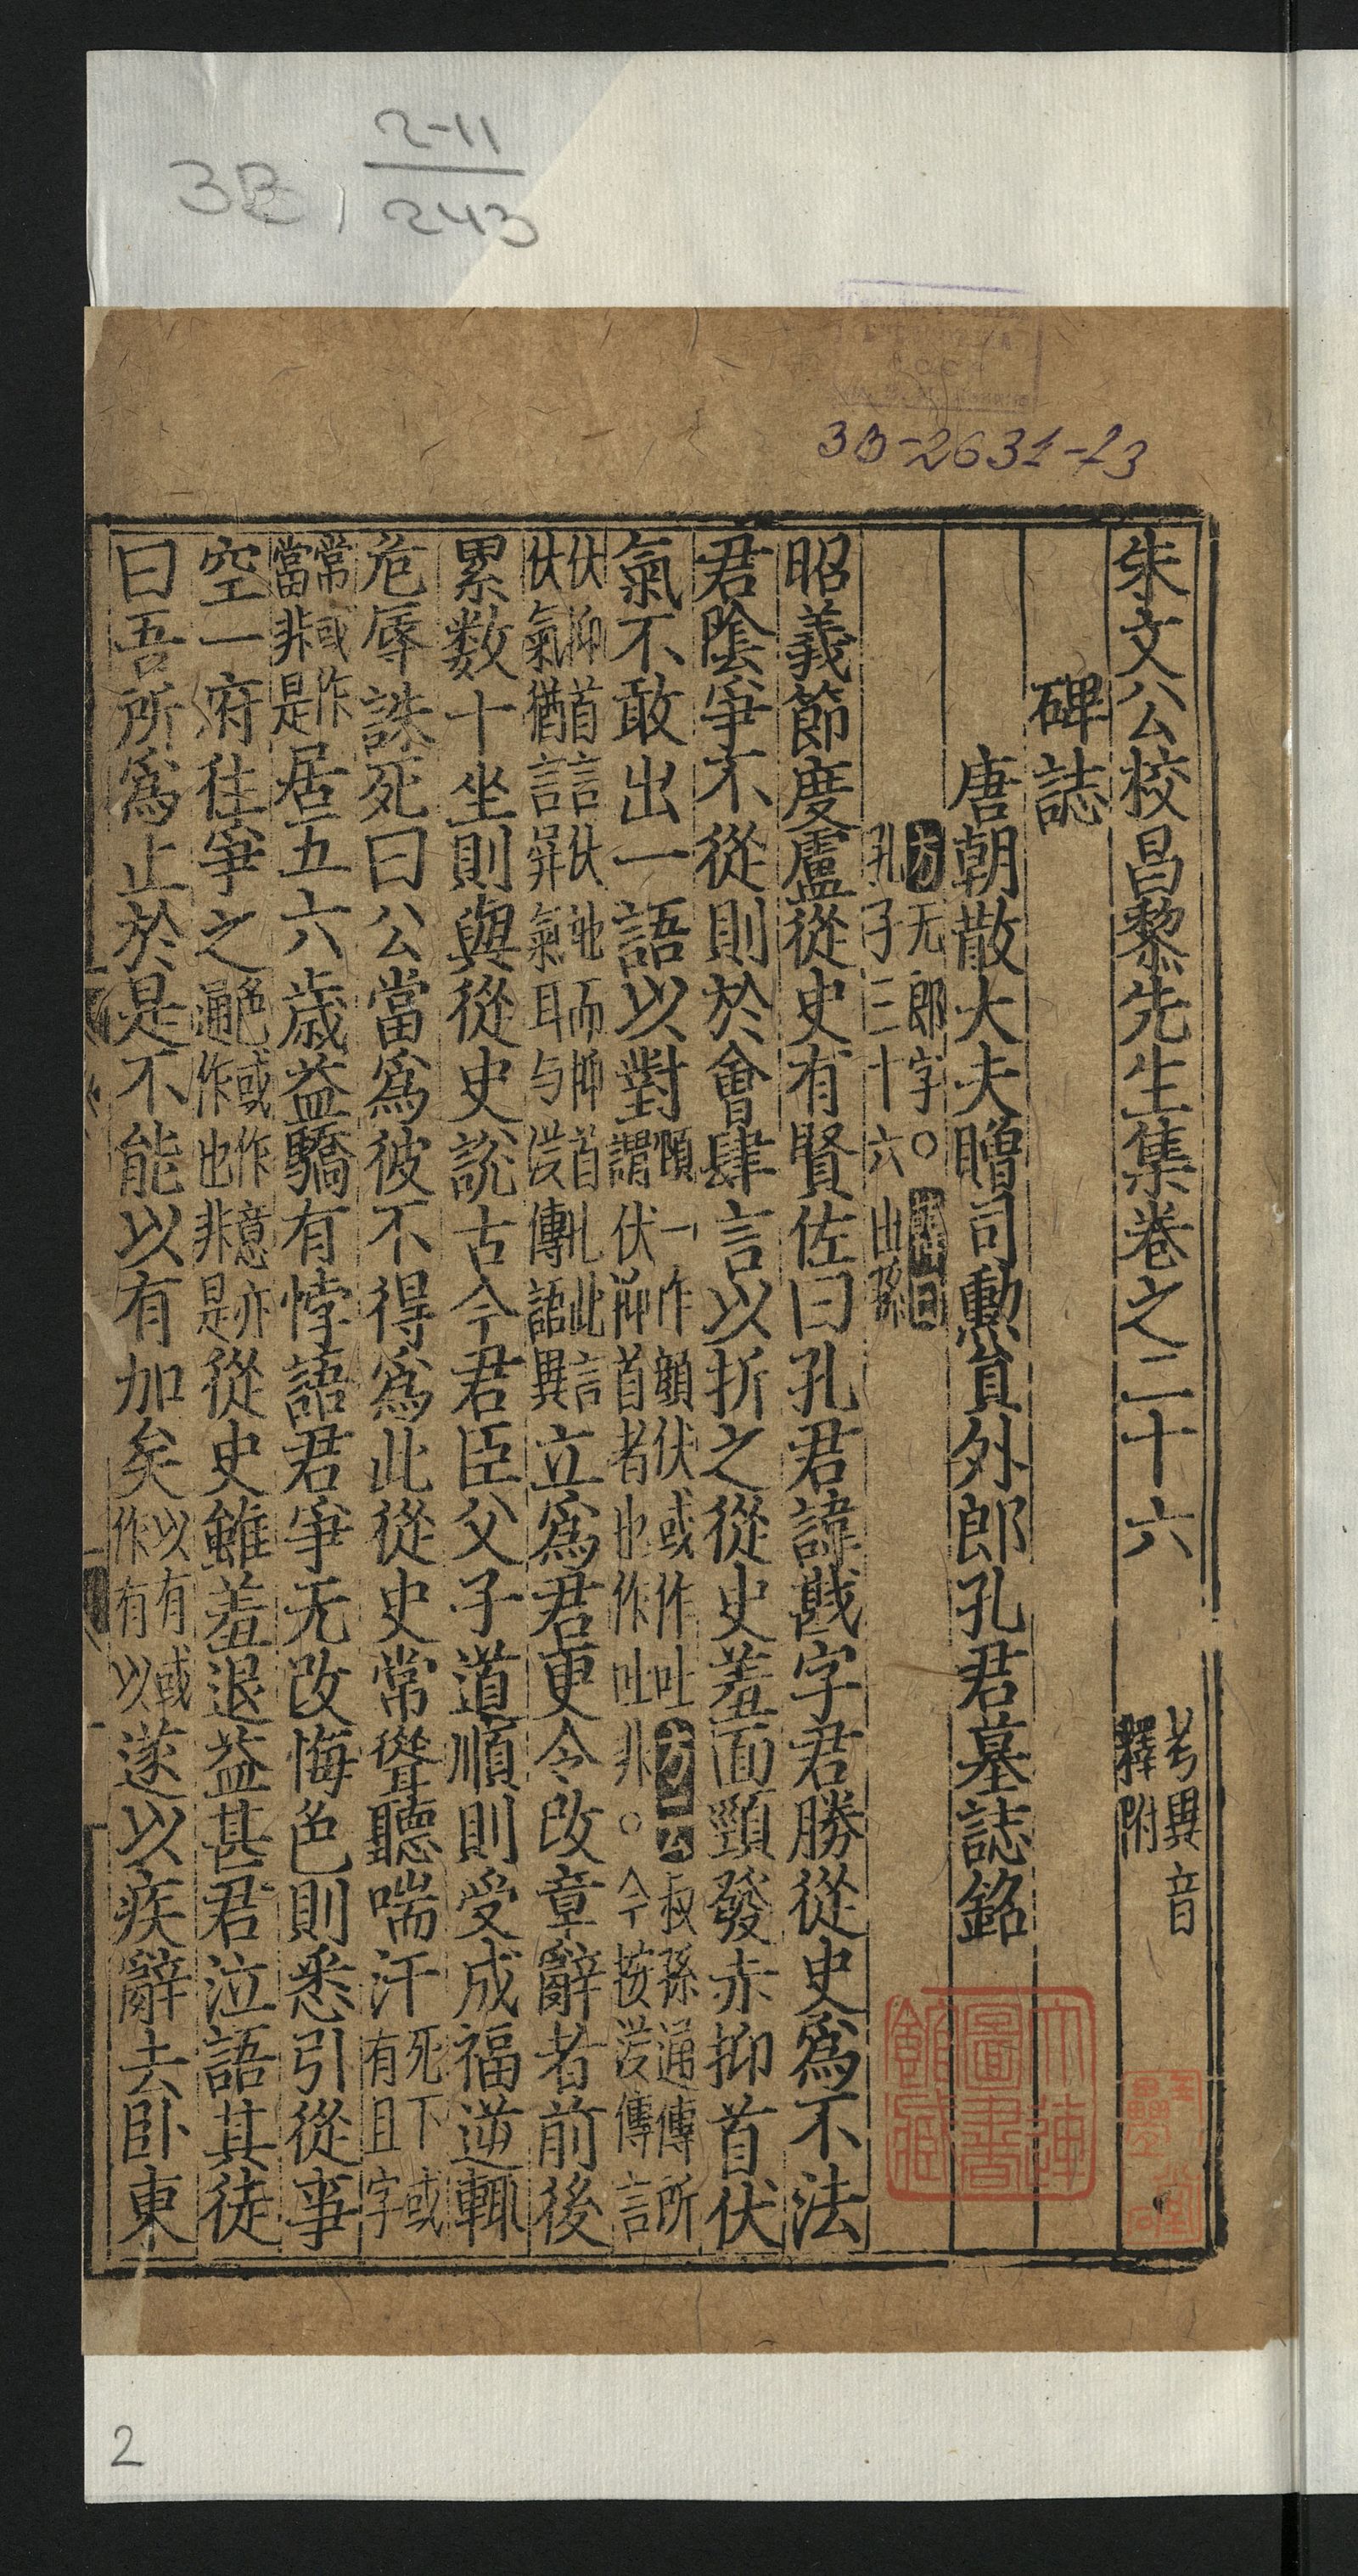 2-11
3B, 243
3B-2631-13
朱文公校昌黎先生集卷之二十六 考異音釋附
碑誌
唐朝散大夫贈司勳負外郎孔君墓誌銘
方无郎字○ 孔子三十六世孫
昭義節度盧從史有賢佐曰孔君諱戡字君勝從史爲不法
君陰爭不從則於會肆言以折之從史羞面頸發赤抑首伏
氣不敢出一語以對頸一作顔伏或作吐方云叔孫通傳所謂伏抑首者也作吐非○今按漢傳言
伏抑首言伏地而抑首爾此言伏氣猶言屏氣耳与漢傳語異立爲君更令改章辭者前後
累数十坐則與從史說古今君臣父子道順則受成福逆輒
危辱誅死曰公當爲彼不得爲此從史常聳聽喘汗死下或有且字
常或作當非是居五六歲益驕有悖語君爭无改悔色則悉引從事
空一府往爭之色或作意亦作也非是從史雖羞退益甚君泣語其徒
曰吾所爲止於是不能以有加矣以有或作有以遂以疾辭去卧東
大連圖書館藏
2